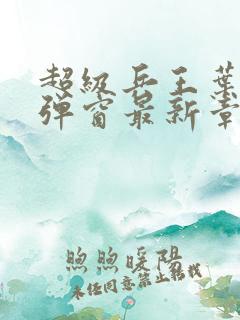 超级兵王叶
弹窗最新章
煦煦暖阳
未经同意禁止转载